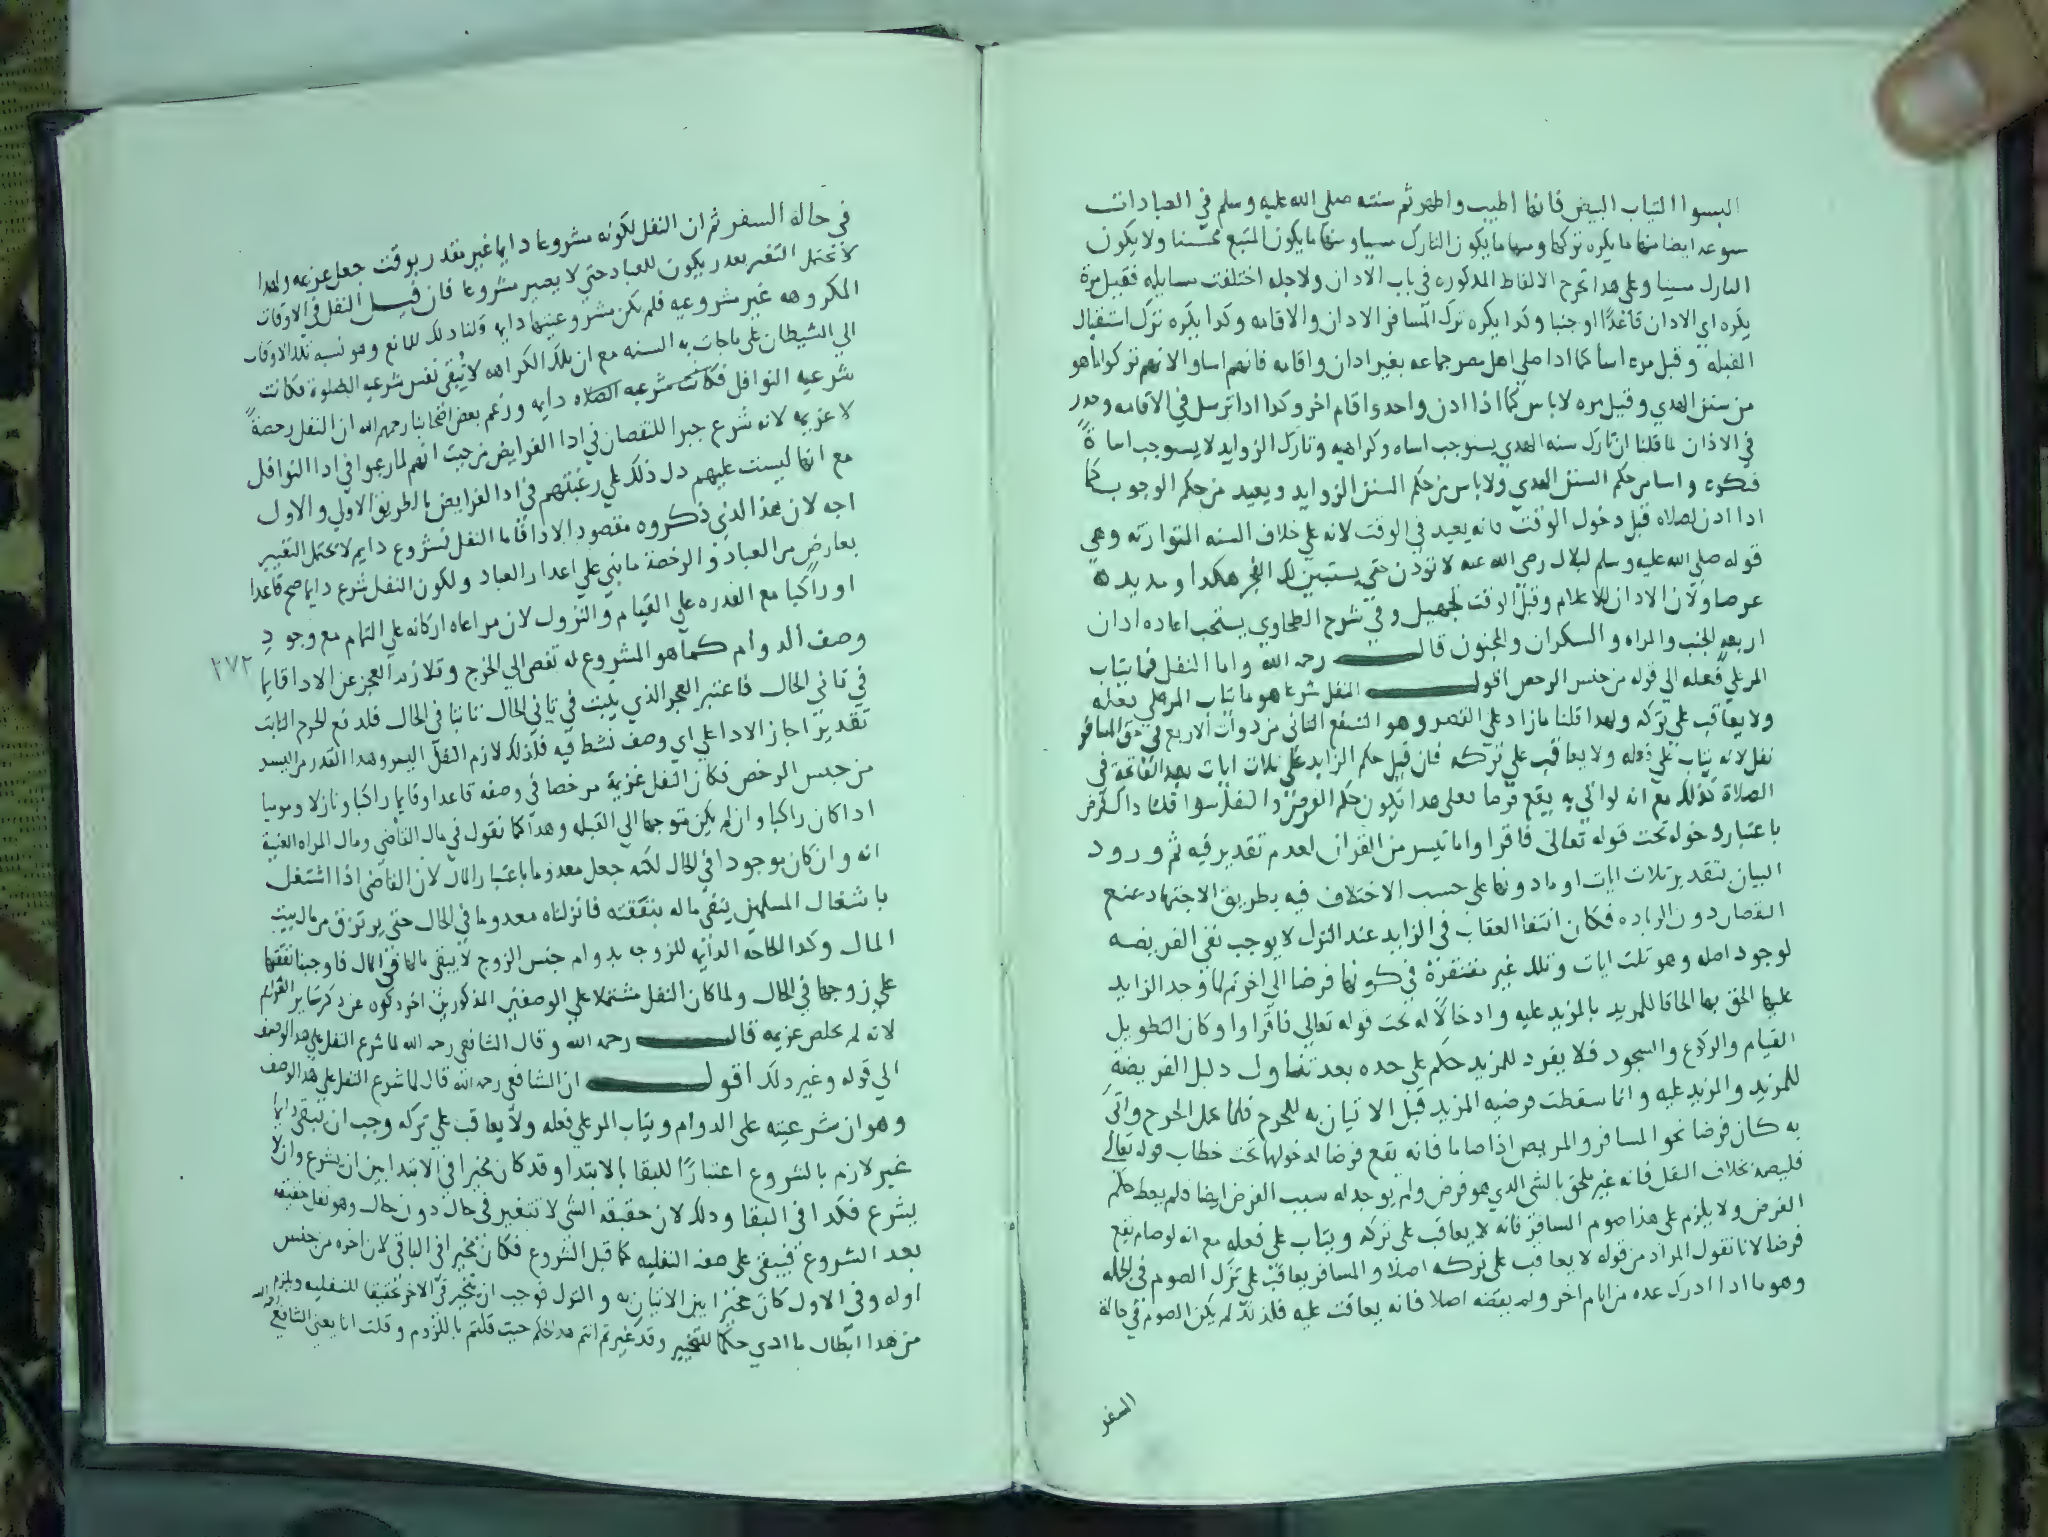 البسوا الثياب البيض فانها اطيب واطهر ثم سنته صلى الله عليه وسلم في العبادات
ايضا منها ما يكره تركها ومنها ما يكون التارك مسيا ومنها ما يكون المتبع محسنا ولا يكون
التارك مسيا وعلى هذا تخرج الالفاظ المذكوره في باب الاذان ولاجله اختلفت مسايله فقيل مرة
يكره اي الاذان قاعدا او جنبا وكذا يكره ترك المسافر الاذان والاقامه وكذا يكره ترك استقبال
القبلة وقيل مره اسا كما اذا صلى اهل مصر جماعه بغير اذان واقامه فانهم اساوا لانهم تركوا ما هو
من سنن الهدي وقيل مره لا باس كما اذا اذن واحد واقام اخر وكذا اذا ترسل في الاقامه وحدر
في الاذان لما قلنا ان تارك سنه الهدي يستوجب اساه وكراهيه وتارك الزوايد لا يستوجب اساة
فيكره واسا من حكم السنن الهدي ولا باس من حكم السنن الزوايد ويعيد من حكم الوجوب كما
اذا اذن لصلاه قبل دخول الوقت فانه يعيد في الوقت لانه على خلاف السنه المتوارثه وهي
قوله صلى الله عليه وسلم لبلال رضي الله عنه لا تؤذن حتى يستبين لك الفجر هكذا ومد يده
عرضا ولان الاذان للاعلام وقبل الوقت تجهيل وفي شرح الطحاوي يستحب اعاده اذان
اربعه الجنب والمراه والسكران والمجنون قال رحمه الله واما النفل فما يثاب
المر على فعله الى قوله من جنس الرخص اقول النفل شرعا هو ما يثاب المر على فعله
ولا يعاقب على تركه ولهذا قلنا ما زاد على القصر وهو الشفع الثاني من ذوات الاربع في حق المسافر
نفل لانه يثاب على فعله ولا يعاقب على تركه فان قيل حكم الزايد على ثلاث ايات بعد الفاتحة في
الصلاة كذلك مع انه لو اتي به يقع فرضا فعلى هذا يكون حكم الفرض والنفل سوا قلنا ذاك فرض
باعتبار دخوله تحت قوله تعالى فاقراوا ما تيسر من القران لعدم تقدير فيه ثم ورود
البيان بتقدير ثلاث ايات او ما دونها على حسب الاختلاف فيه بطريق الاجتهاد عنع
النقصان دون الزياده فكان انتفا العقاب في الزايد عند الترك لا يوجب نفي الفريضه
لوجود اصله وهو ثلث ايات وتلك غير مفتقرة في كونها فرضا الى اخر ثم لما وجد الزايد
عليها الحق بها الحاقا للمزيد بالمزيد عليه وادخالا له تحت قوله تعالى فاقراوا وكان التطويل
القيام والركوع والسجود فلا يفرد للمزيد حكم على حده بعد تناول دليل الفريضة
للمزيد والمزيد عليه وانما سقطت فرضيه المزيد قبل الاتيان به للحرج فلما عمل الحرج واتى
به كان فرضا نحو المسافر والمريض اذا صاما فانه يقع فرضا لدخولها تحت خطاب قوله تعالى
فليصمه بخلاف النفل فانه غير ملحق بالشي الذي هو فرض ولم يوجد له سبب الفرض ايضا ولم يعط حكم
الفرض ولا يلزم على هذا صوم المسافر فانه لا يعاقب على تركه ويثاب على فعله مع انه لو صام يقع
فرضا لانا نقول المراد من قوله لا يعاقب على تركه اصلا والمسافر يعاقب على ترك الصوم في الجمله
وهو ما اذا ادرك عده من ايام اخر ولم يقضه اصلا فانه يعاقب عليه فلذلك لم يكن الصوم في حالة
السفر
في حاله السفر ثم ان النفل لكونه مشروعا دايما غير مقدر بوقت جعل عزيمه ولهذا
لا تحتمل التغير بعذر يكون للعباد حتى لا يصير مشروعا فان قيل النفل في الاوقات
المكروهه غير مشروعيه فلم تكن مشروعيتها دايه قلنا ذلك للمانع وهو نسبه تلك الاوقات
الى الشيطان على ما جات به السنه مع ان تلك الكراهه لا تنفى نفس شرعيه الصلوة فكانت
شرعيه النوافل فكانت شرعيه الصلاه دايه وزعم بعض اصحابنا رحمهم الله ان النفل رخصة
لا عزيمه لانه شرع جبرا للنقصان في ادا الفرايض من حيث انهم لما رغبوا في ادا النوافل
مع انها ليست عليهم دل ذلك على رغبتهم في ادا الفرايض بالطريق الاولي والاول
اجه لان هذا الذي ذكروه مقصود الادا فاما النفل مشروع دايم لا يحتمل التغيير
بعارض من العباد والرخصة ما بني على اعذار العباد ولكون النفل شرع دايما صح قاعدا
او راكبا مع القدره على القيام والنزول لان مراعاه اركانه على التمام مع وجود
وصف الدوام كما هو المشروع له تفضي الى الحرج وتلازمه العجز عن الادا قايما
في ثاني الحال فاعتبر العجز الذي يثبت في ثاني الحال ثابتا في الحال فلدفع الحرج الثابت
تقديرا جاز الادا على اي وصف نشط فيه فلذلك لازم النفل اليسر وهذا القدر من اليسر
من جنس الرخص فكان النفل عزيمة مرخصا في وصفه قاعدا وقايما راكبا ونازلا وموميا
اذا كان راكبا وان لم يكن متوجها الى القبله وهذا كما نقول في مال القاضي ومال المراه الغنية
انه وان كان موجودا في الحال لكنه جعل معدوما باعتبار المال لان القاضي اذا اشتغل
باشغال المسلمين ينفى ماله بنفقته فانزلناه معدوما في الحال حتى يرتزق من مال بيت
المال وكذا الحاجه الدايه للزوجه بدوام حبس الزوج لا يبقى مالها في المال فاوجبنا نفقتها
على زوجها في الحال ولما كان النفل مشتملا على الوصفين المذكورين اخر ذكره عن ذكر ساير العزايم
لانه لم يخلص عزيمه قال رحمه الله وقال الشافعي رحمه الله لما شرع النفل على هذا الوصف
الى قوله وغير ذلك اقول ان الشافعي رحمه الله قال لما شرع النفل على هذا الوصف
وهو ان شرعيته على الدوام ويثاب المر على فعله ولا يعاقب على تركه وجب ان تبقى دايما
غير لازم بالشروع اعتبارا للبقا بالابتدا وقد كان مخيرا في الابتدا بين ان يشرع وان لا
يشرع فكذا في البقا وذلك لان حقيقه الشي لا تتغير في حال دون حال وهو نفل حقيقه
بعد الشروع فيبقى على صفه النفليه كما قبل الشروع فكان مخيرا في الباقي لان اخره من جنس
اوله وفي الاول كان مخيرا بين الاتيان به والترك فوجب ان يتخير في الاخر تحقيقا للنفليه ويلزم
من هذا ابطال ما ادي حكما للتخيير وقد غيرتم انتم هذا الحكم حيث قلتم باللزوم وقلت انا يعني الشافعي رحمه الله
٢٧٢